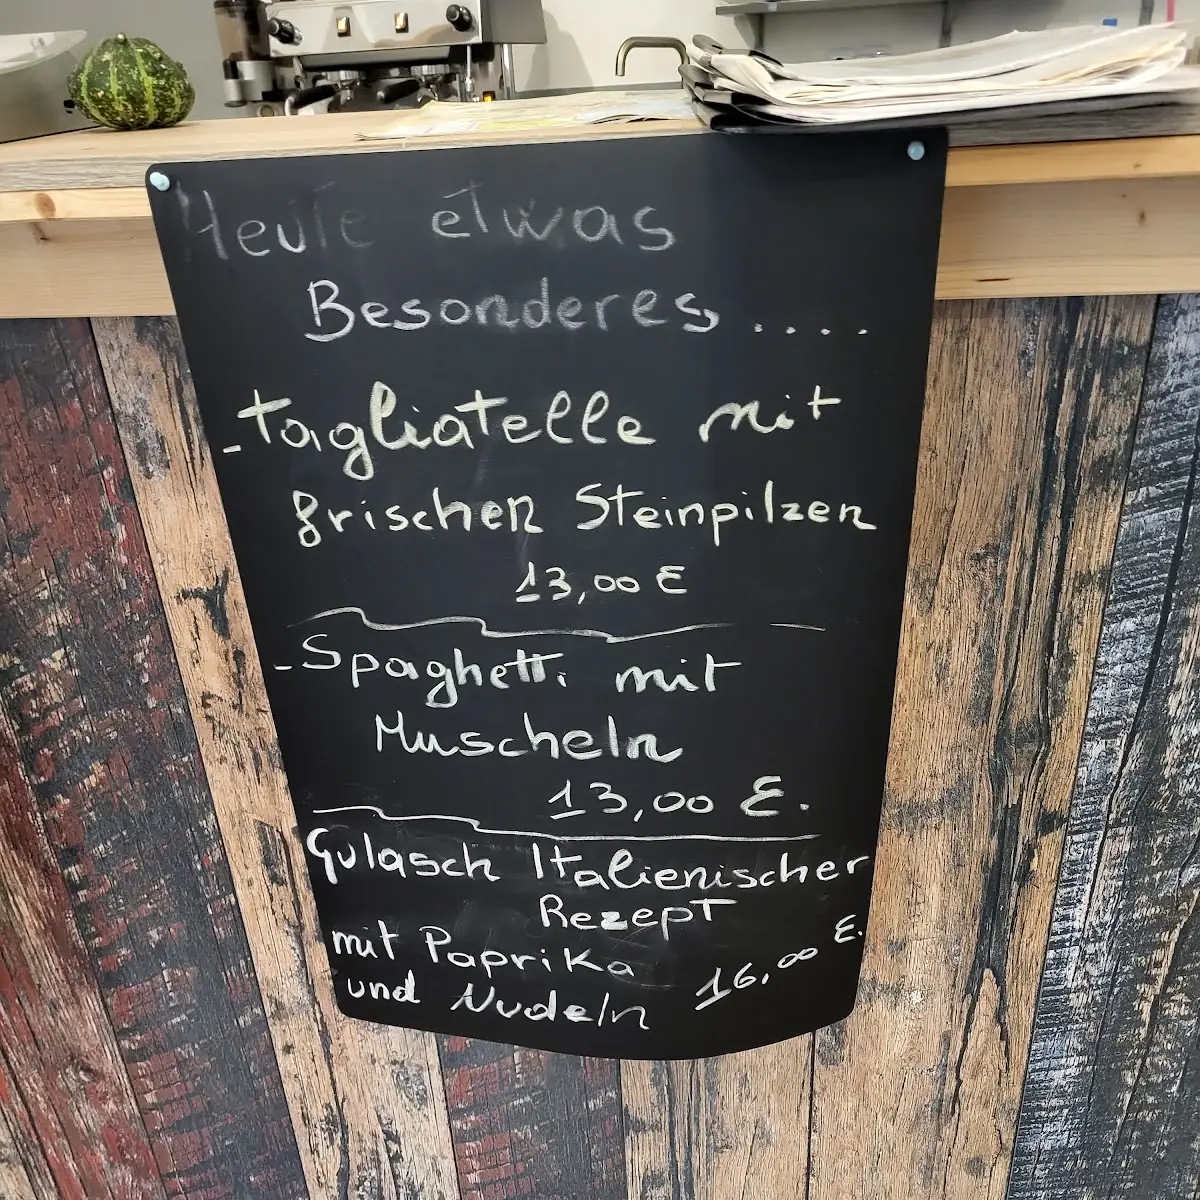 Heute etwas
Besonderes....
-Tagliatelle mit
frischen Steinpilzen
13,00 €
-Spaghetti mit
Muscheln
13,00 €.
Gulasch Italienischer
Rezept
mit Paprika
und Nudeln 16,00 €.